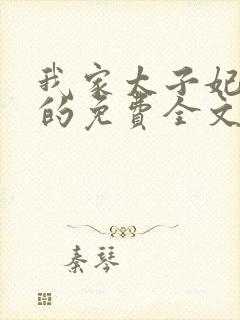 我家太子妃
的免费全文
秦琴